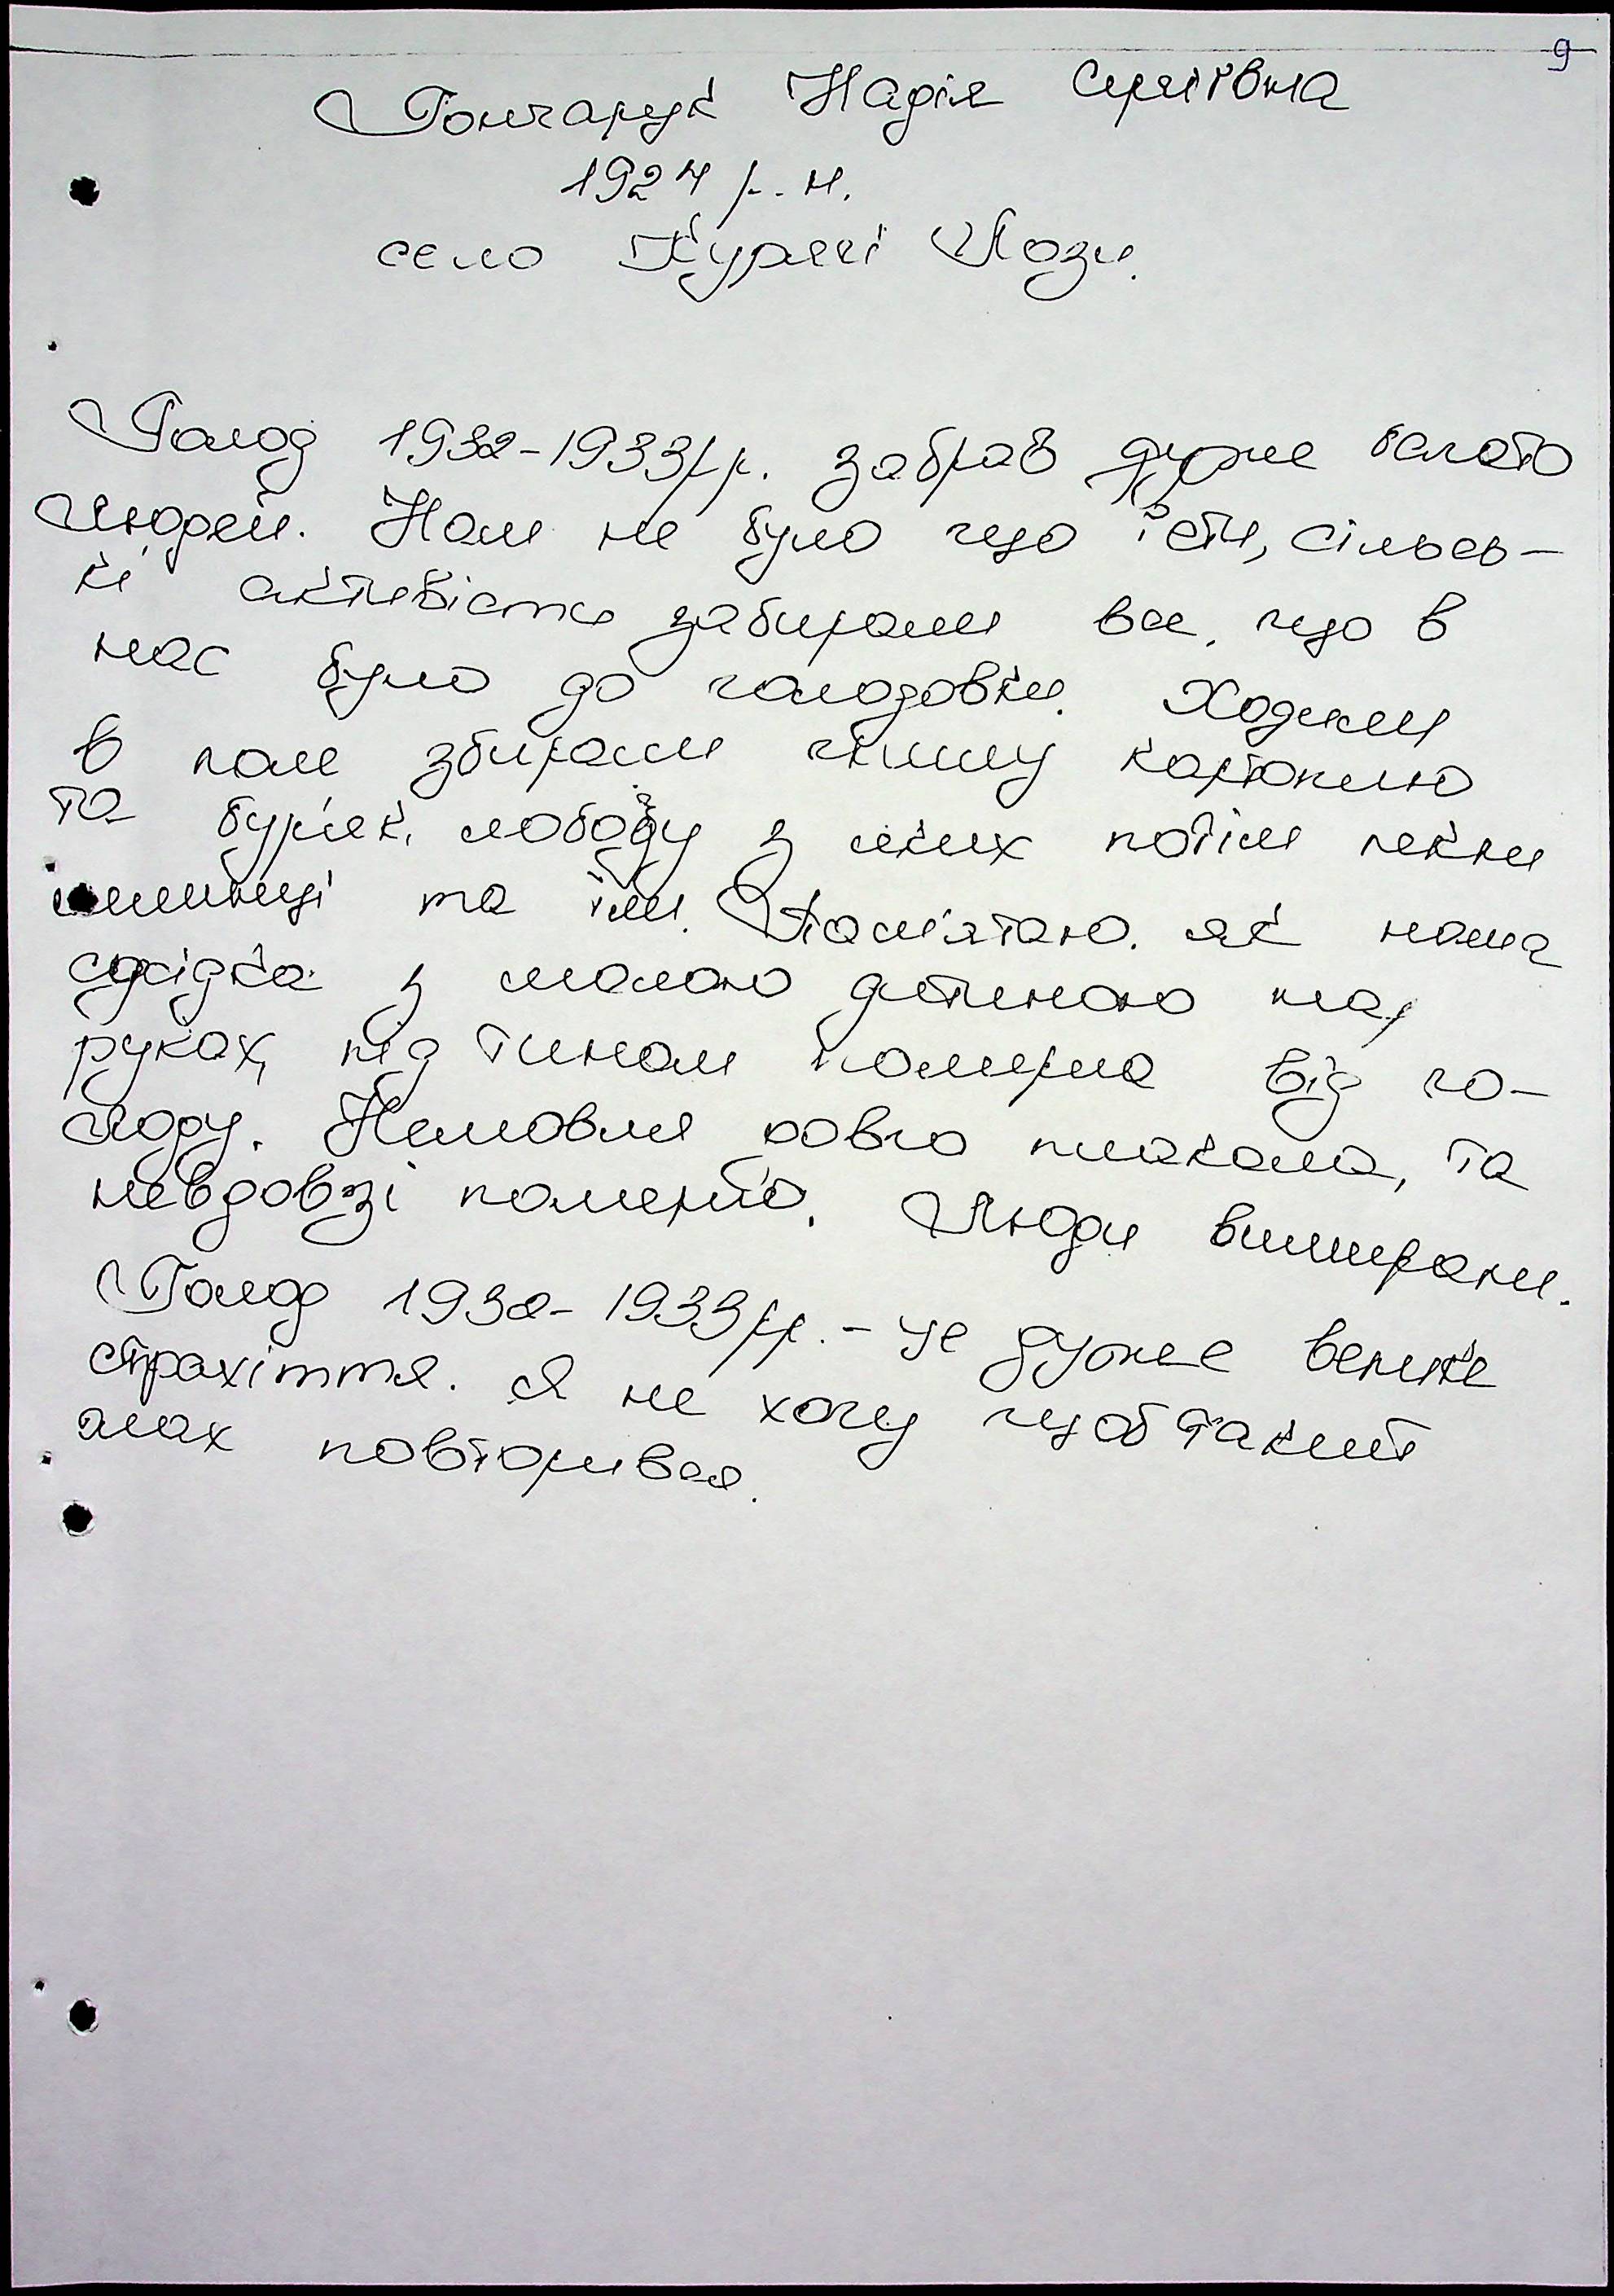 9
Гончарук Надія Сергіївна
1924 р. н.
село Курячі Лози.
Голод 1932-1933рр. забрав дуже багато
людей. Нам не було що їсти, сільсь-
кі активісти забирали все, що в
нас було до голодовки. Ходили
в поле збирали гнилу картоплю
та буряк, лободу з яких потім пекли
млинці та їли. Пам'ятаю, як наша
сусідка з малою дитиною на
руках, під тином померла від го-
лоду. Немовля довго плакало, та
невдовзі померло. Люди вимирали.
Голод 1932-1933рр. - це дуже велике
страхіття. Я не хочу щоб такий
жах повторився.